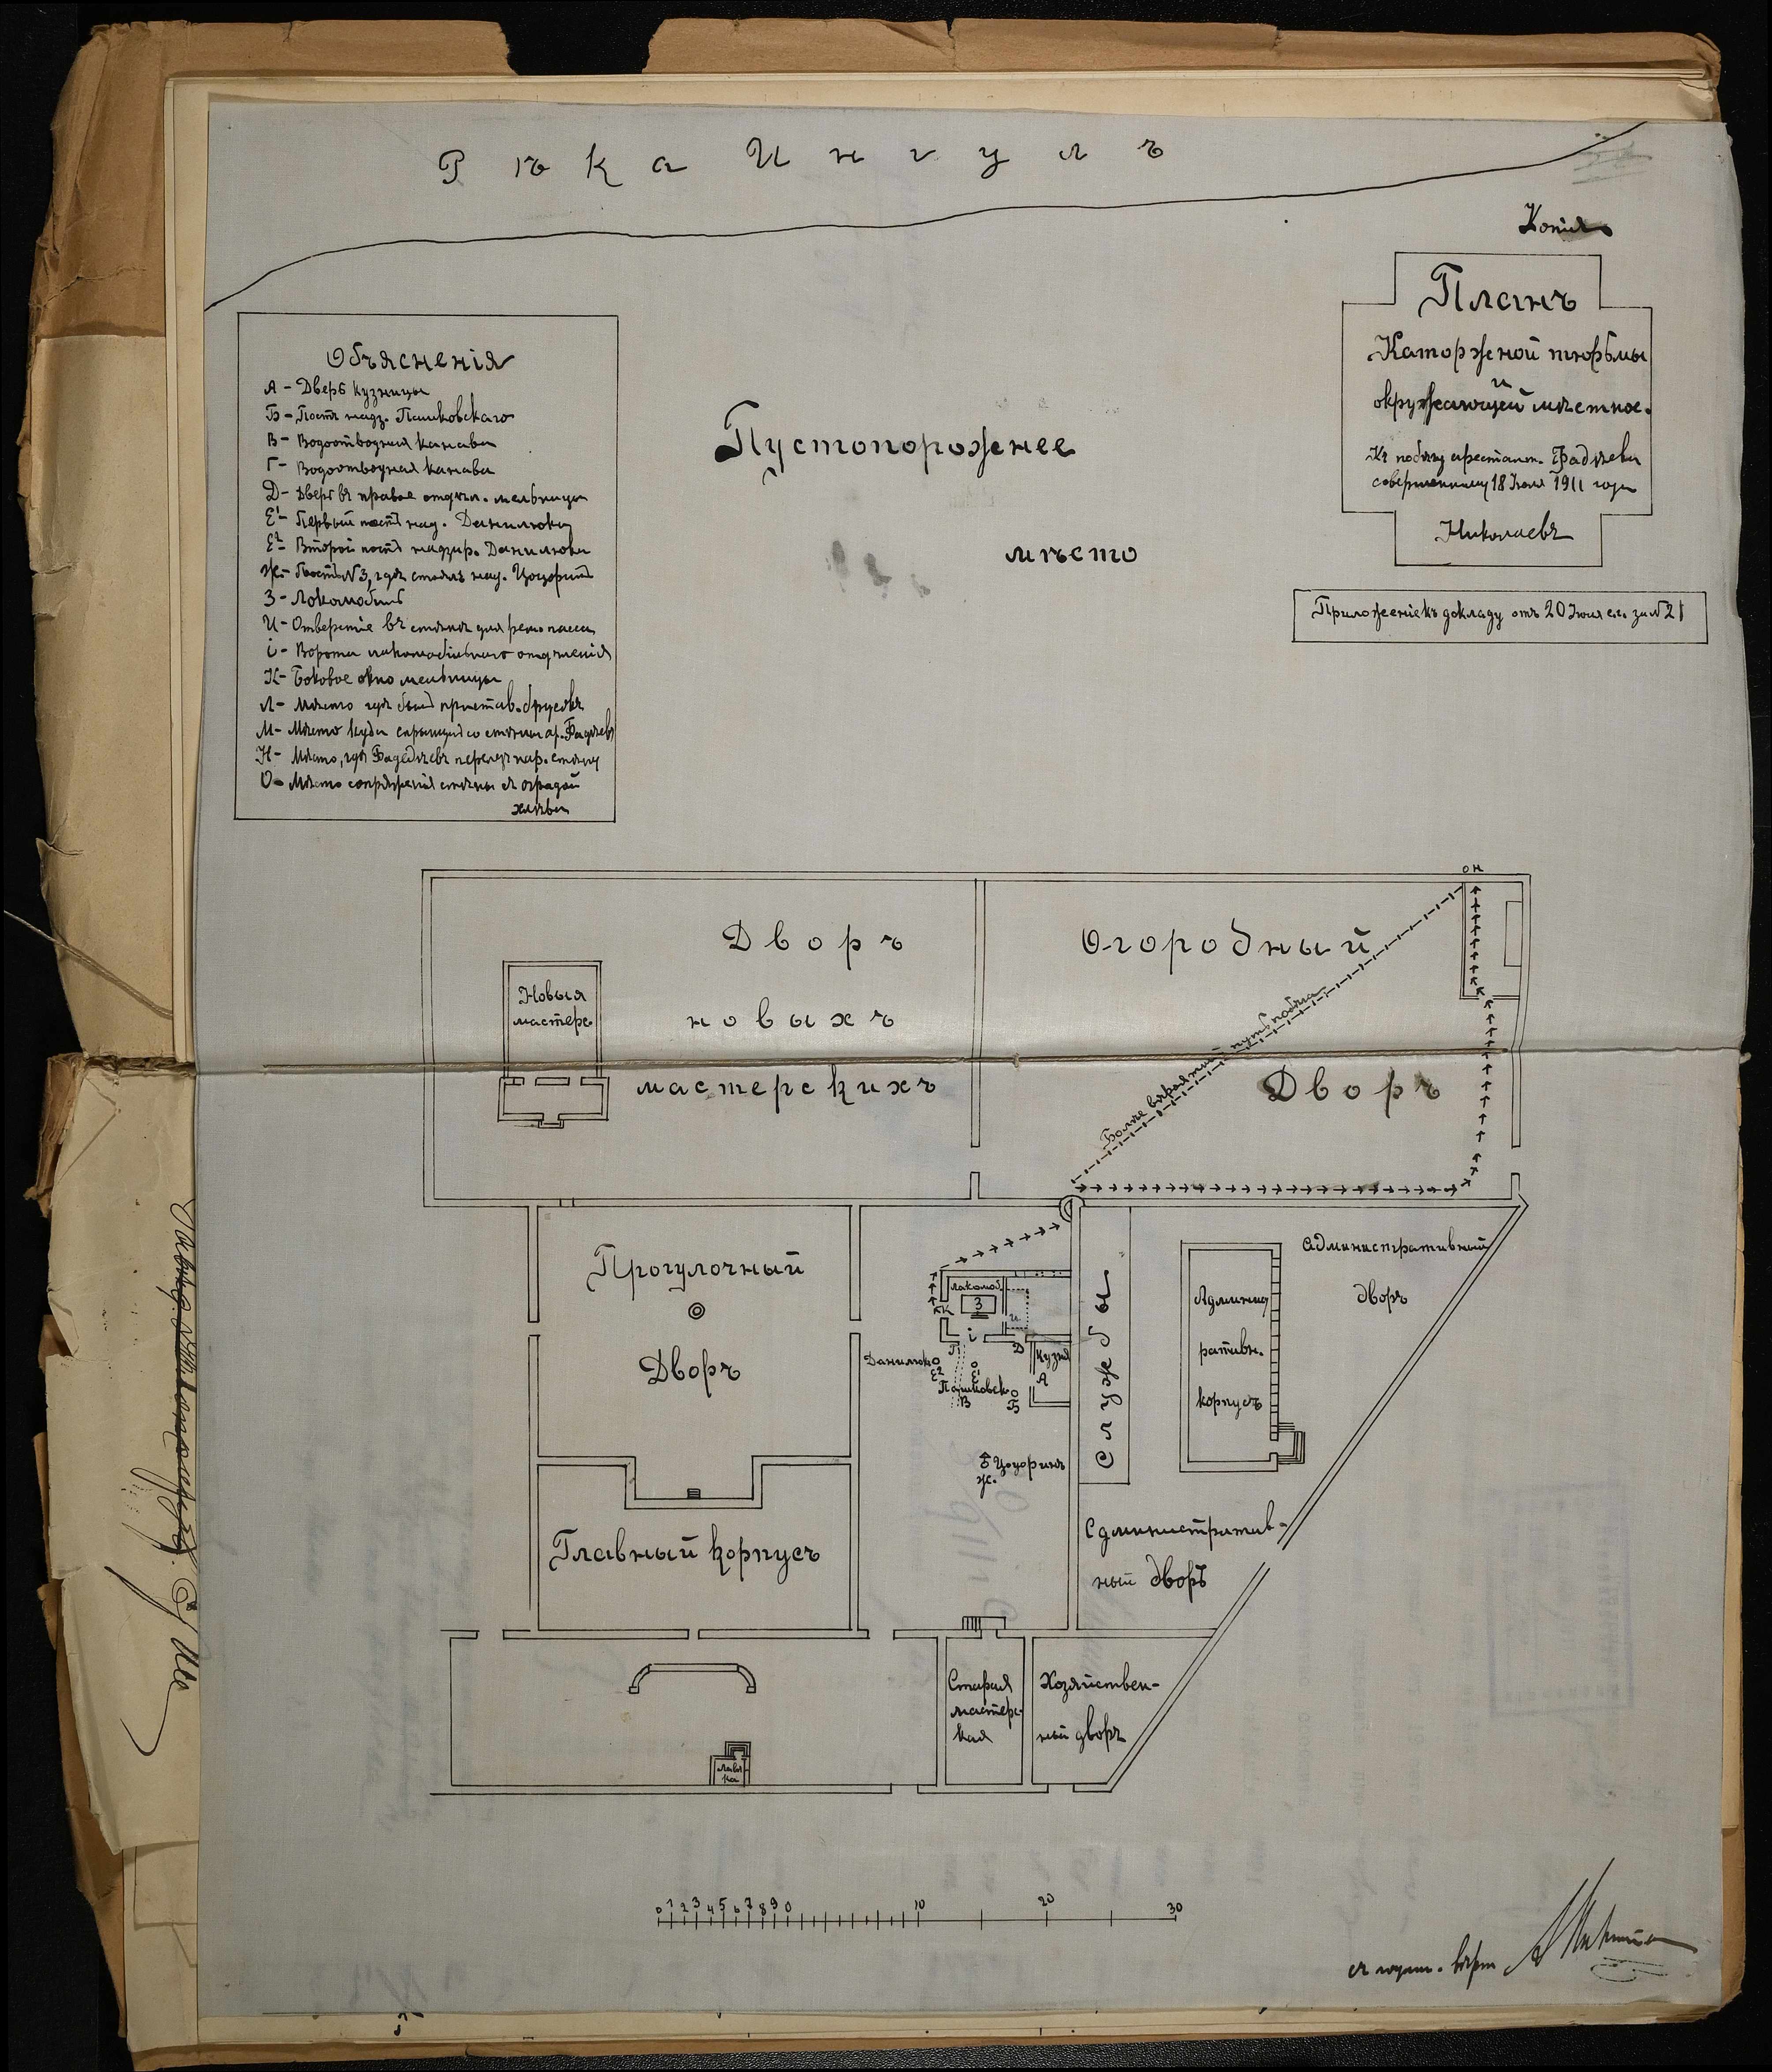 Рѣка Ингулъ
Копія
Планъ
Каторжной тюрьмы
и
окружающей мѣстнос.
Къ побѣгу арестант. Фадѣева
совершенному 18 Іюля 1911 года
Николаевъ
Приложеніе къ докладу отъ 20 Іюля с.г. за № 21
Объясненія
А - Дверь кузницы
Б - Постъ надз. Пашковскаго
В - Водоотводная канава
Г - Водоотводная канава
Д - Дверь въ правое отдѣл. мельницы
Е¹ - Первый постъ над. Данилюка
Е² - Второй постъ надзир. Данилюка
Ж - Постъ № 3, гдѣ стоялъ над. Цоцоринъ
З - Локомобиль
И - Отверстіе въ стѣнѣ для рем. пасса
і - Ворота локомобильнаго отдѣленія
К - Боковое окно мельницы
Л - Мѣсто гдѣ былъ пристав. брусокъ
М - Мѣсто куда спрыгнулъ со стѣны ар. Фадѣевъ
Н - Мѣсто, гдѣ Фадѣевъ перелѣзъ нар. стѣну
О - Мѣсто сопряженія стѣны съ оградой
хлѣва
Пустопорожнее
мѣсто
О Н
Дворъ
новыхъ
мастерскихъ
Новыя
мастерс
Огородный
Дворъ
Болѣе вѣроятный путь побѣга
Прогулочный
Дворъ
Главный корпусъ
Локомоб.
З
и
К
і
Г
Д
Кузня
А
Данилюкъ
Е²
Е¹
Пашковск
В
Б
Цоцоринъ
Ж.
Службы
Административный
дворъ
Админист
ративн.
корпусъ
Административ-
ный дворъ
Старая
мастерс-
кая
Хозяйствен-
ный дворъ
Лав
ка
0 1 2 3 4 5 6 7 8 9 0 10 20 30